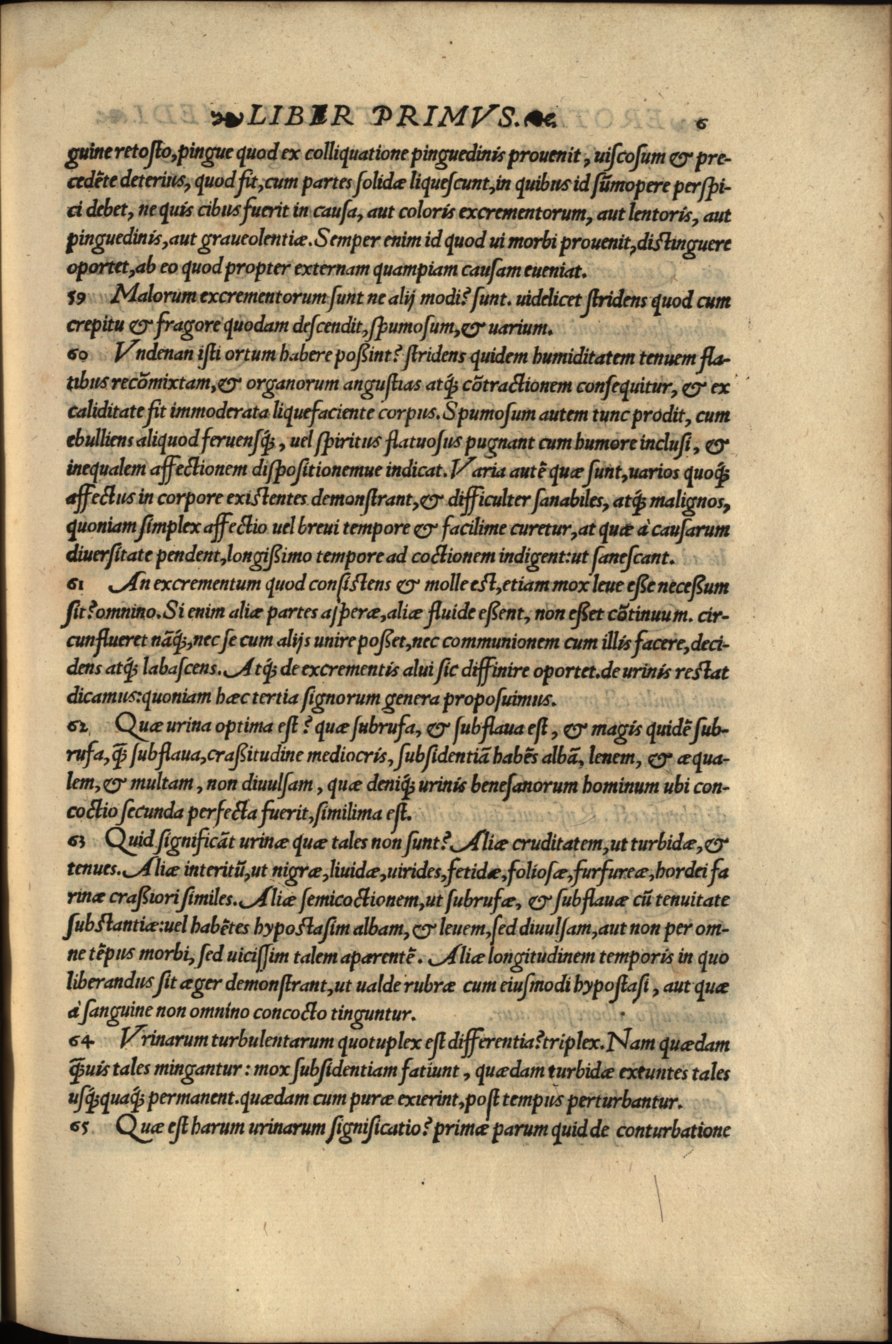 LIBER PRIMVS. 6
guine retosto, pingue quod ex colliquatione pinguedinis prouenit, uiscosum & pre-
cedẽte deterius, quod fit, cum partes solidæ liquescunt, in quibus id sũmopere perspi-
ci debet, ne quis cibus fuerit in causa, aut coloris excrementorum, aut lentoris, aut
pinguedinis, aut graueolentiæ. Semper enim id quod ui morbi prouenit, distinguere
oportet, ab eo quod propter externam quampiam causam eueniat.
59 Malorum excrementorum sunt ne alij modi? sunt. uidelicet stridens quod cum
crepitu & fragore quodam descendit, spumosum, & uarium.
60 Vndenan isti ortum habere poßint? stridens quidem humiditatem tenuem fla-
tibus recõmixtam, & organorum angustias atq́; cõtractionem consequitur, & ex
caliditate fit immoderata liquefaciente corpus. Spumosum autem tunc prodit, cum
ebulliens aliquod feruensq́;, uel spiritus flatuosus pugnant cum humore inclusi, &
inequalem affectionem dispositionemue indicat. Varia autẽ quæ sunt, uarios quoq́;
affectus in corpore existentes demonstrant, & difficulter sanabiles, atq́; malignos,
quoniam simplex affectio uel breui tempore & facilime curetur, at quæ à causarum
diuersitate pendent, longißimo tempore ad coctionem indigent: ut sanescant.
61 An excrementum quod consistens & molle est, etiam mox leue eße neceßum
sit? omnino. Si enim aliæ partes asperæ, aliæ fluide eßent, non eßet cõtinuum. cir-
cunflueret nãq́;, nec se cum alijs unire poßet, nec communionem cum illis facere, deci-
dens atq́; labascens. Atq́; de excrementis alui sic diffinire oportet. de urinis restat
dicamus: quoniam hæc tertia signorum genera proposuimus.
62 Quæ urina optima est? quæ subrufa, & subflaua est, & magis quidẽ sub-
rufa, q̃; subflaua, craßitudine mediocris, subsidentiã habẽs albã, lenem, & æqua-
lem, & multam, non diuulsam, quæ deniq́; urinis benesanorum hominum ubi con-
coctio secunda perfecta fuerit, similima est.
63 Quid significãt urinæ quæ tales non sunt? Aliæ cruditatem, ut turbidæ, &
tenues. Aliæ interitũ, ut nigræ, liuidæ, uirides, fetidæ, foliosæ, furfureæ, hordei fa
rinæ craßiori similes. Aliæ semicoctionem, ut subrufæ, & subflauæ cũ tenuitate
substantiæ: uel habẽtes hypostasim albam, & leuem, sed diuulsam, aut non per om-
ne tẽpus morbi, sed uicissim talem aparentẽ. Aliæ longitudinem temporis in quo
liberandus sit æger demonstrant, ut ualde rubræ cum eiusmodi hypostasi, aut quæ
à sanguine non omnino concocto tinguntur.
64 Vrinarum turbulentarum quotuplex est differentia? triplex. Nam quædam
q̃;uis tales mingantur: mox subsidentiam fatiunt, quædam turbidæ exeuntes tales
usq́;quaq́; permanent. quædam cum puræ exierint, post tempus perturbantur.
65 Quæ est harum urinarum significatio? primæ parum quid de conturbatione